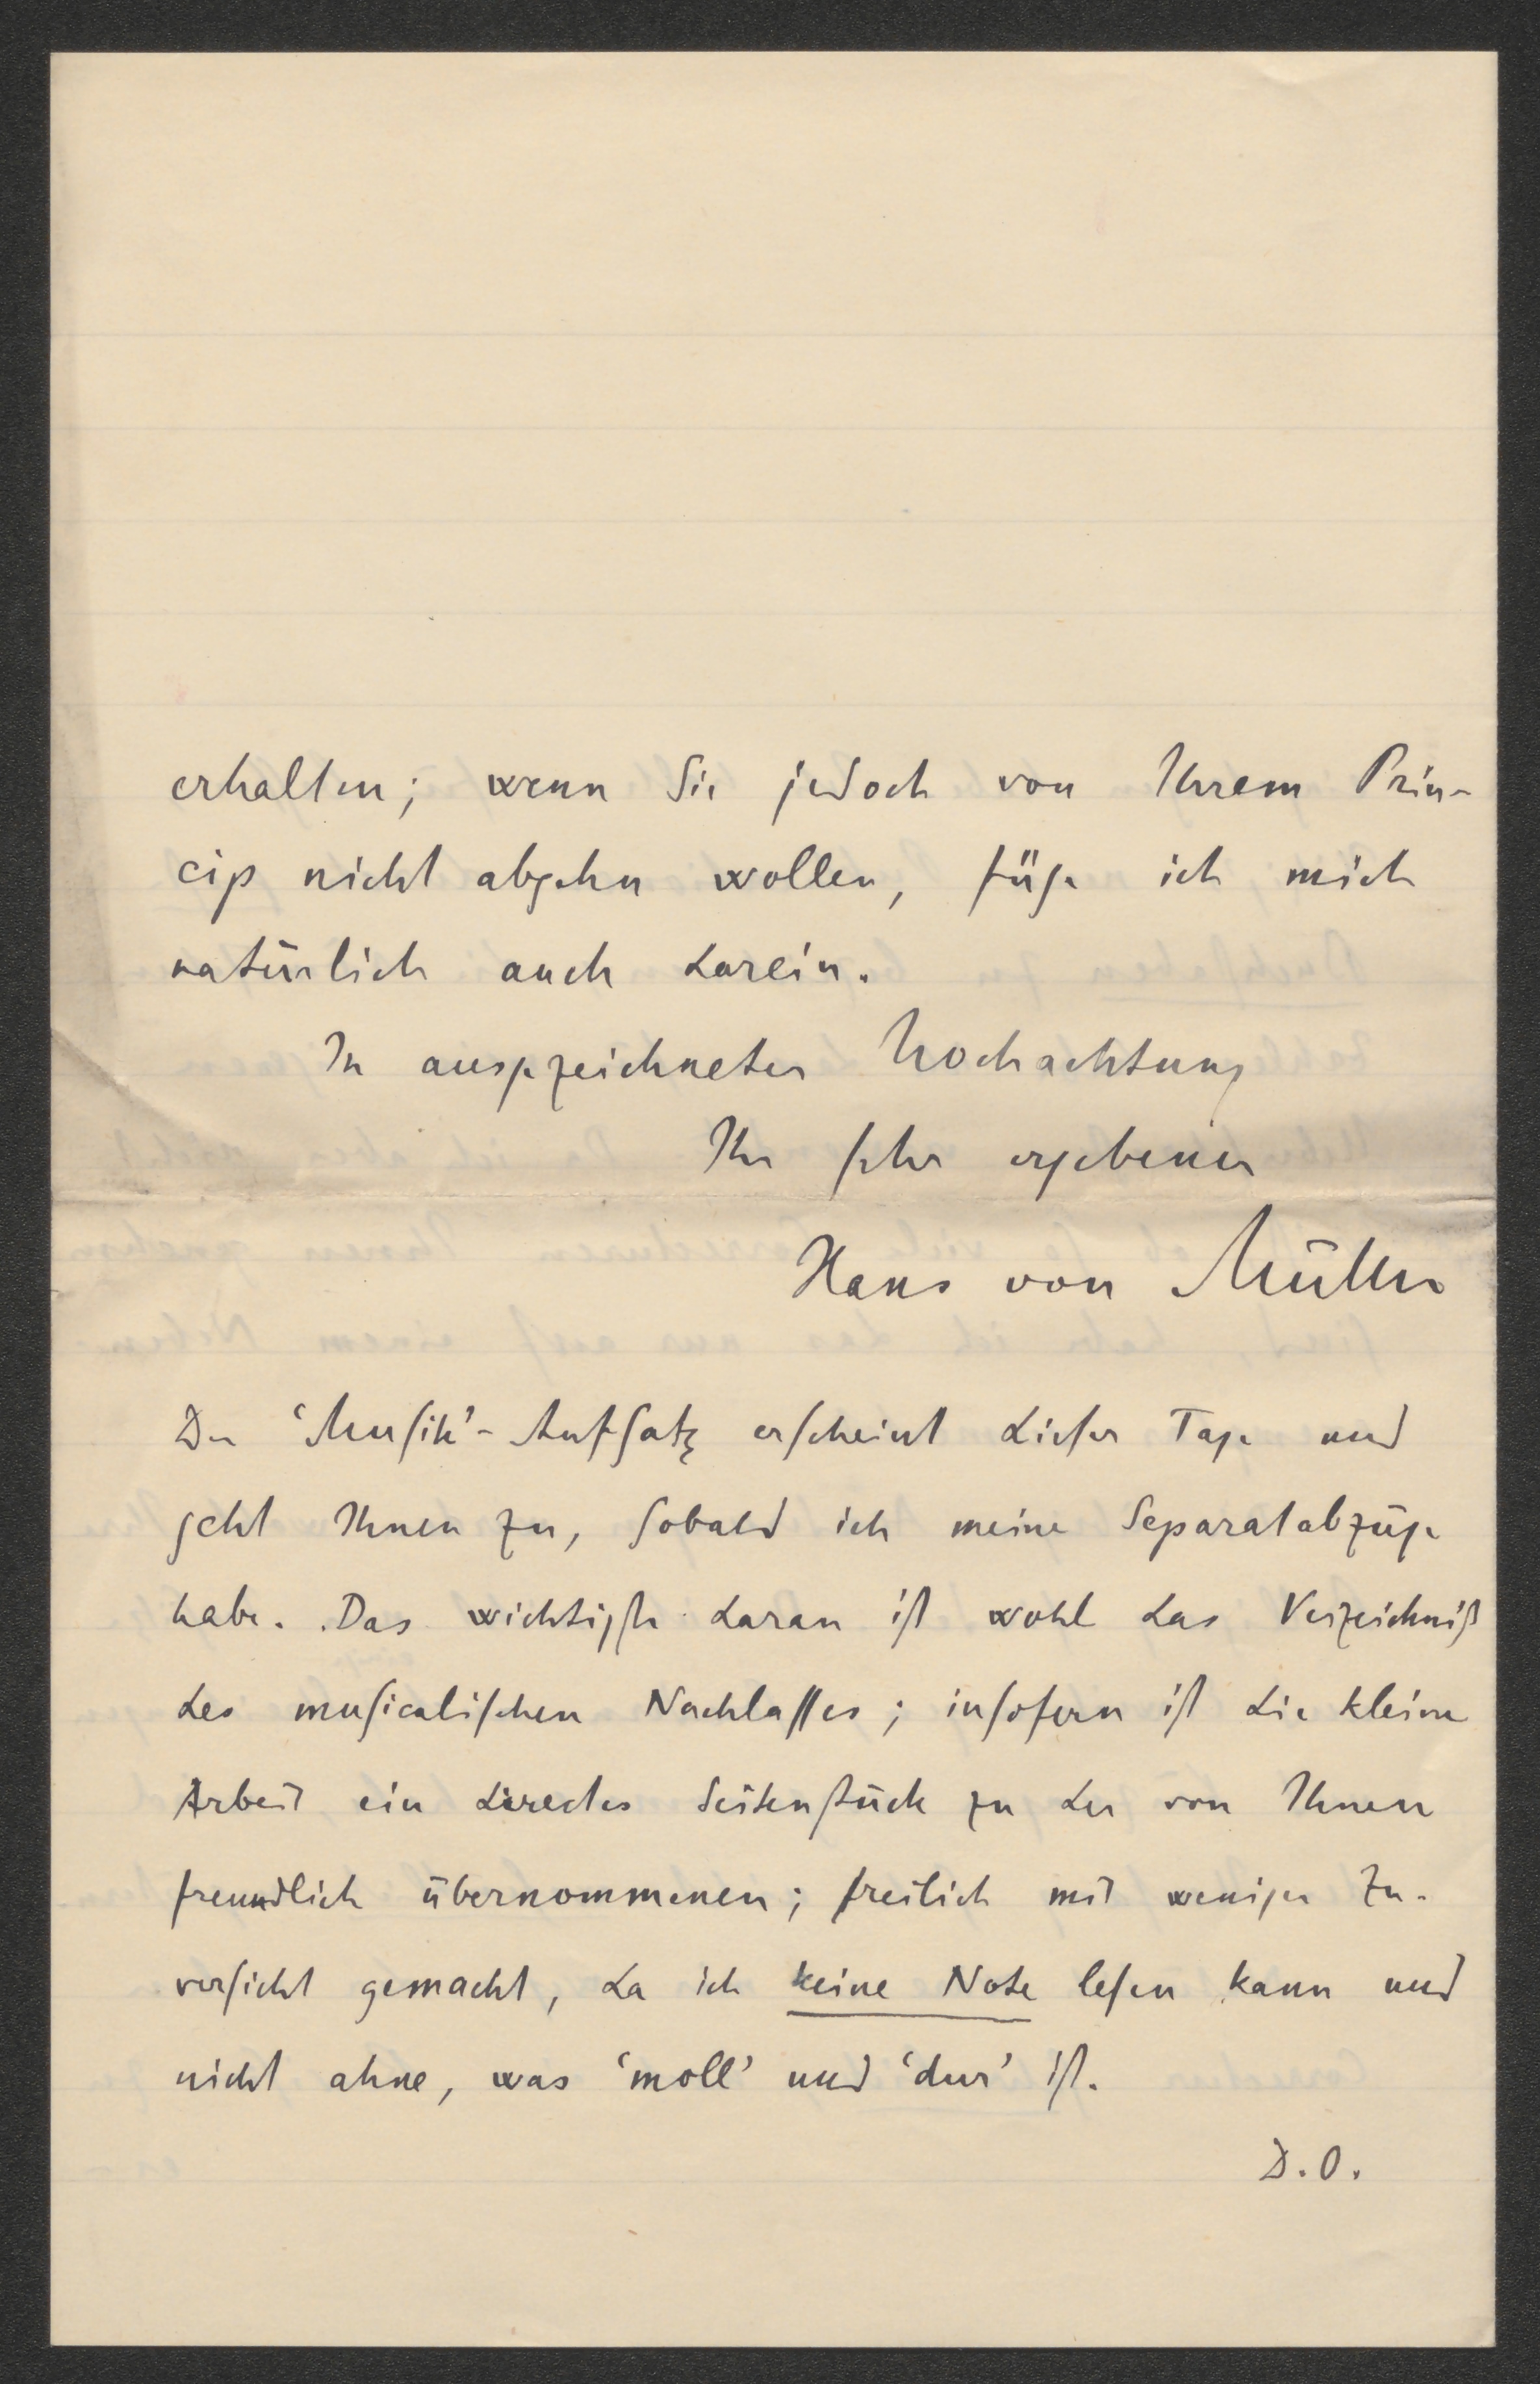 erhalten; wenn Sie jedoch von Ihrem Prin-
cip nicht abgehn wollen, füge ich mich
natürlich auch darein.
In ausgezeichneter Hochachtung
Ihr sehr ergebener
Hans von Müller
Der ‘Musik’-Aufsatz erscheint dieser Tage und
geht Ihnen zu, sobald ich meine Separatabzüge
habe. Das wichtigste daran ist wohl das Verzeichniß
des musicalischen Nachlasses; insofern ist die kleine
Arbeit ein directes Seitenstück zu der von Ihnen
freundlich übernommenen; freilich mit weniger Zu-
versicht gemacht, da ich keine Note lesen kann und
nicht ahne, was ‘moll’ und ‘dur’ ist.
D.O.